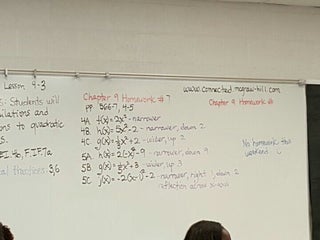 Lesson 4-3
Students will
ons to quadratic
F.IF.7a
3,6
Chapter 9 Homework # 7
pp. 566-7, 4-5
4A. h(x) = 2x² - narrower
4B. h(x) = 5x² - 2 - narrower, down 2
4C. g(x) = x² + 2 - wider, up 2
5A. - narrower, down 9
5B. g(x) = x² + 3 - wider, up 3
5C. - narrower, right 1, down 2
reflection across x-axis
www.connected.mcgraw-hill.com
Chapter 9 Homework #
No homework this
weekend